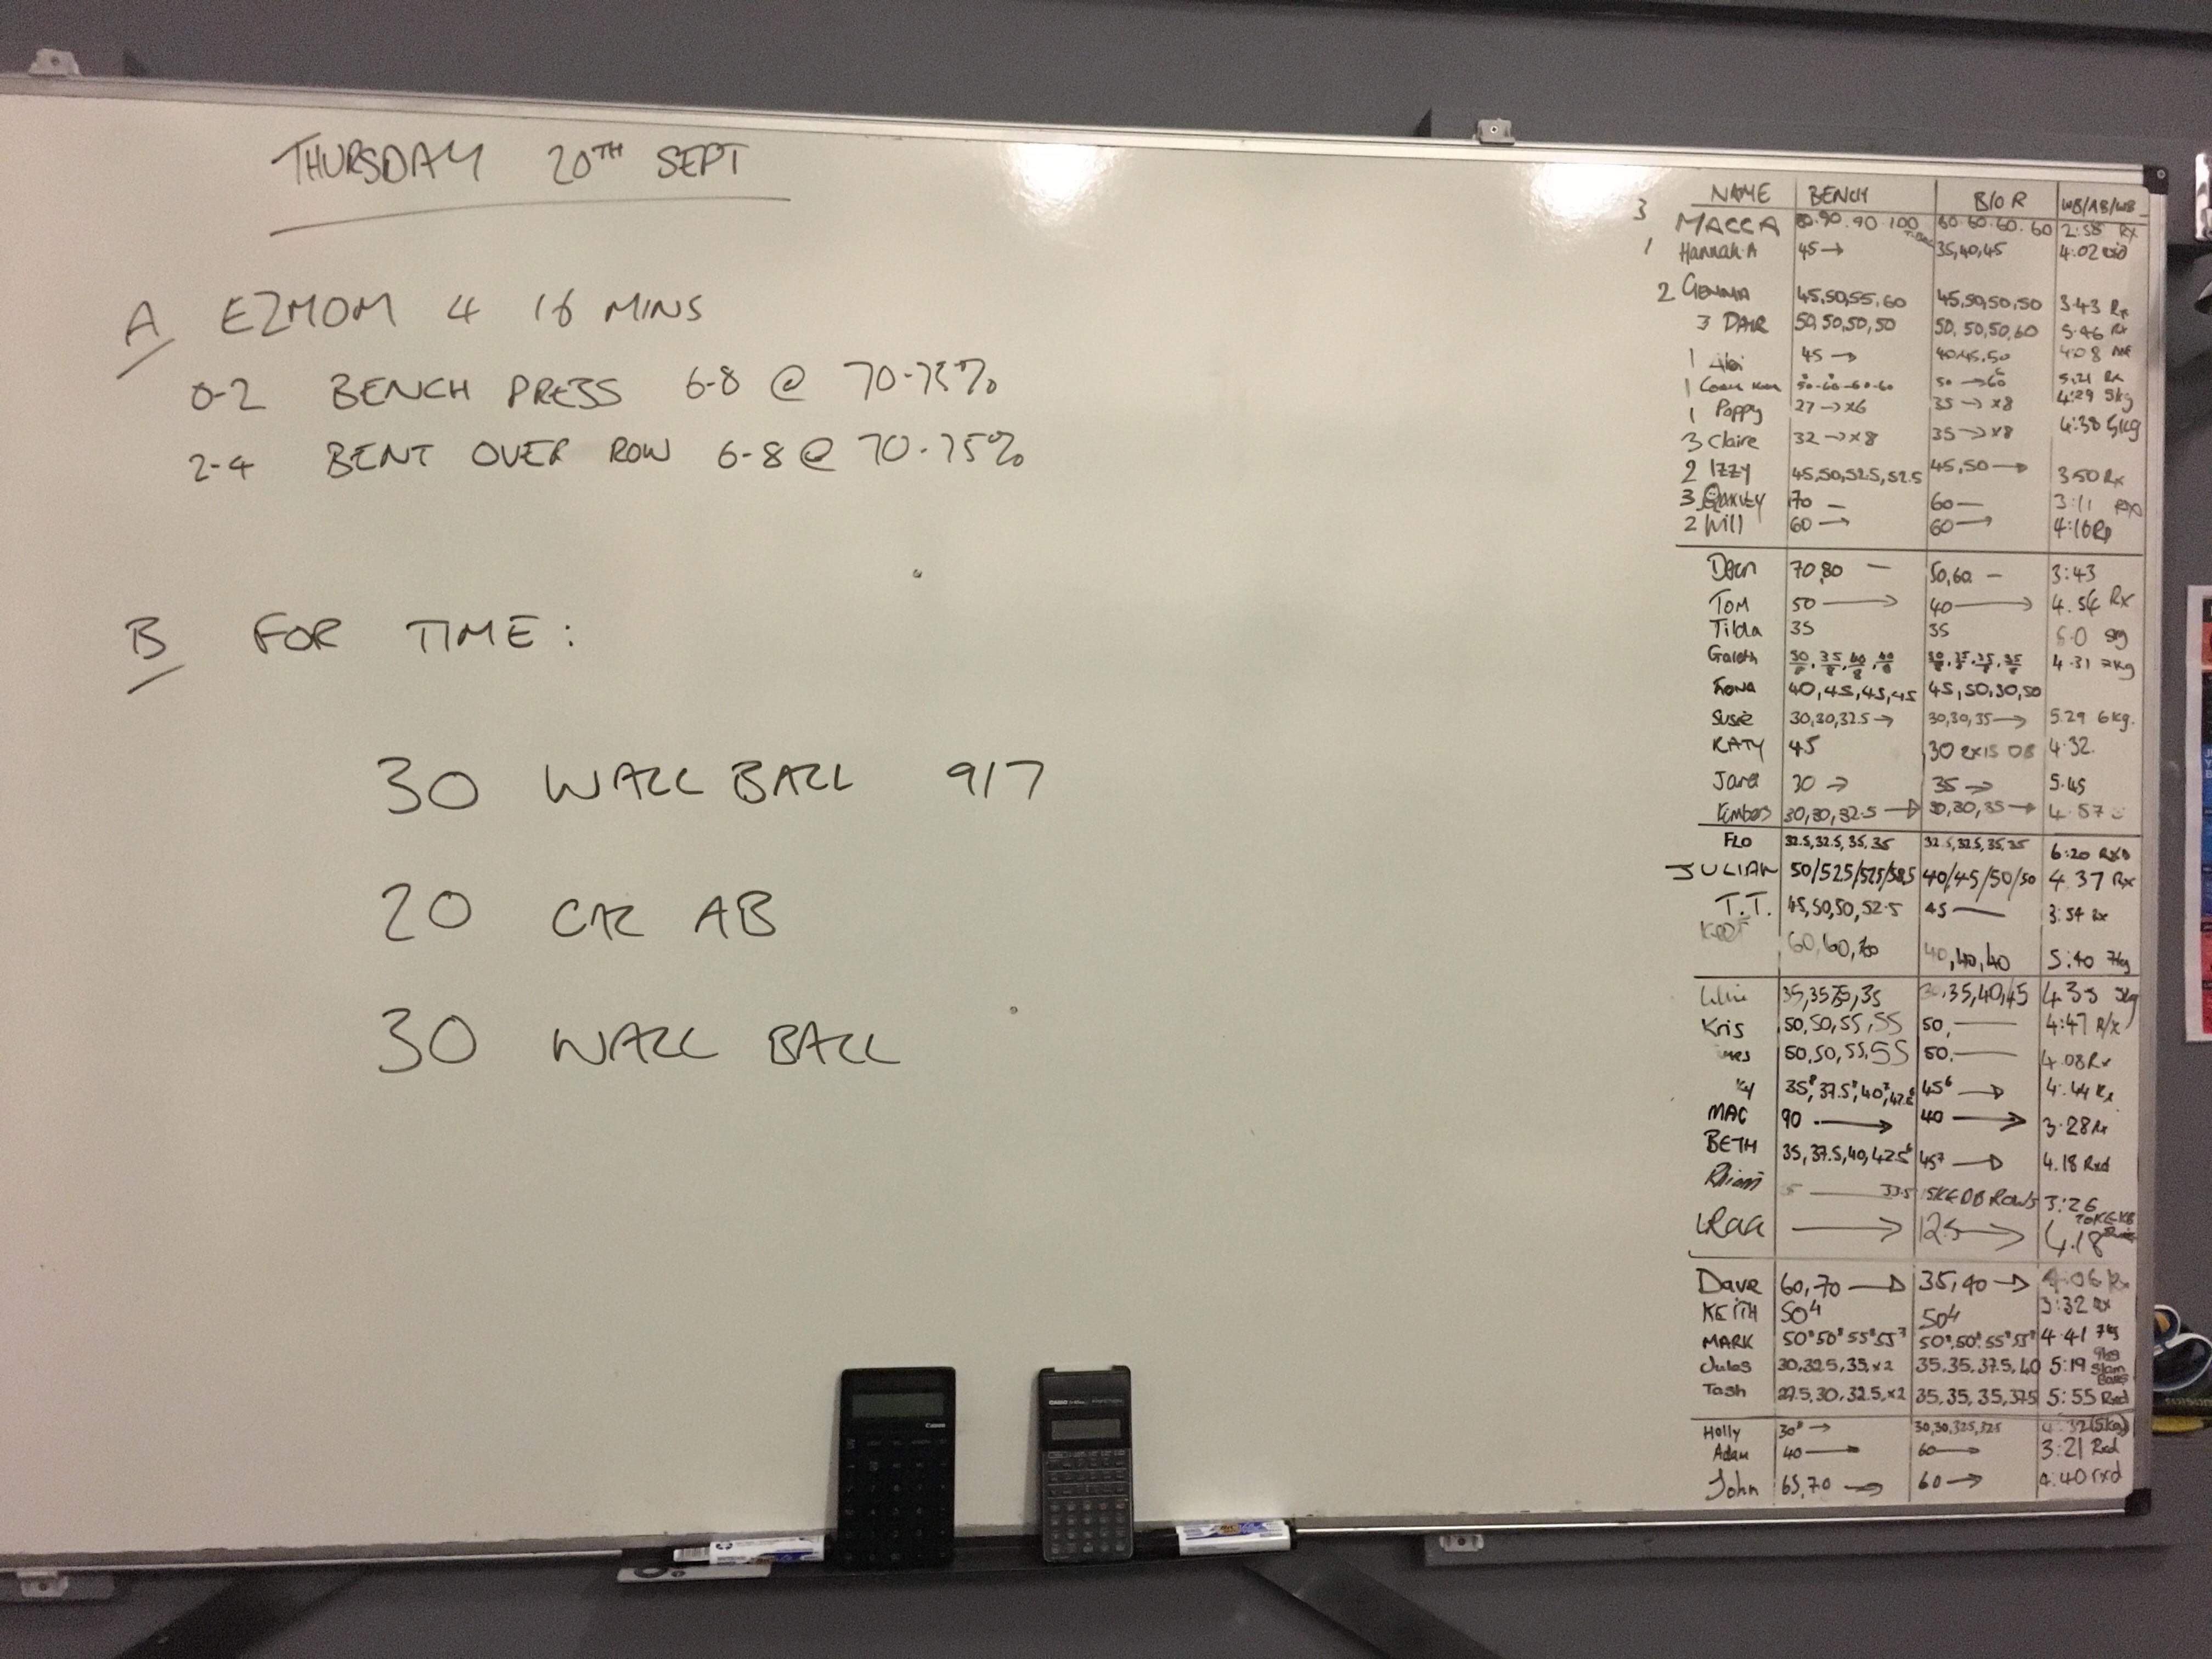 THURSDAY 20TH SEPT
A E2MOM 4 16 MINS
0-2 BENCH PRESS 6-8 @ 70-75%
2-4 BENT OVER ROW 6-8 @ 70-75%
B FOR TIME:
30 WALL BALL 9/7
20 CAL AB
30 WALL BALL
NAME BENCH B/O R WB/AB/WB
3 MACCA 90. 90. 100 60. 60. 60. 60 2:58 Rx
1 Hannah.A 45→ 35,40,45 4:02 rxd
2 Gemma 45,50,55,60 45,50,50,50 3:43 Rx
3 DAIR 50,50,50,50 50,50,50,60 5:46 Rx
1 Abi 45→ 40,45,50 4:08
1 50→60 5:21 Rx
1 Poppy 27→x6 35→x8 4:29 5kg
3 Claire 32→x8 35→x8 4:38 5kg
2 Izzy 45,50,52.5,52.5 45,50→ 3:50 Rx
3 70 — 60 — 3:11
2 Will 60→ 60→ 4:16 Rx
Dean 70,80 — 50,60 — 3:43
Tom 50→ 40→ 4.54 Rx
Tilda 35 35
Gareth 30/8, 35/8, 40/8, 40/8 30/8, 35/8, 35/8, 35/8 4.31 7kg
Fiona 40,45,45,45 45,50,50,50
Susie 30,30,32.5→ 30,30,35→ 5.29 6kg.
KATY 45 30 4.32.
30→ 35→ 5.45
30,30,32.5→ 30,30,35→ 4.57
FLO 32.5,32.5,35,35 32.5,32.5,35,35 6:20 RXD
JULIAN 50/52.5/52.5/52.5 40/45/50/50 4.37 Rx
T.T. 45,50,50,52.5 45 — 3:54 Rx
60,60,60 40,40,40 5:40 7kg
35,35,35,35 35,40,45 4.35 5kg
Kris 50,50,55,55 50, — 4:47 R/x
50,50,55,55 50. — 4.08 Rx
Ky 35⁸,37.5⁸,40⁷,42.5⁶ 45⁶→ 4.44 Rx
MAC 90→ 40→ 3.28 Rx
BETH 35,37.5,40,42.5⁶ 45⁷→ 4.18 Rxd
15KG DB ROWS 3:26
→ 12.5→ 4.18
Dave 60,70→ 35,40→ 4.06 Rx
KEITH 50⁴ 50⁴ 3:32 Rx
MARK 50⁸ 50⁸ 55⁸ 55⁷ 50⁸,50⁸,55⁸ 55⁸ 4.41 7kg
Jules 30,32.5,35,x2 35.35.37.5,40 5:19 9kg Slam Balls
Tash 27.5,30,32.5,x2 35,35,35,37.5 5:55 Rxd
Holly 30⁸→ 30,30,32.5,32.5 4:32 (5kg)
Adam 40→ 60→ 3:21 Rxd
John 65,70→ 60→ 4.40 rxd
Canon
CASIO